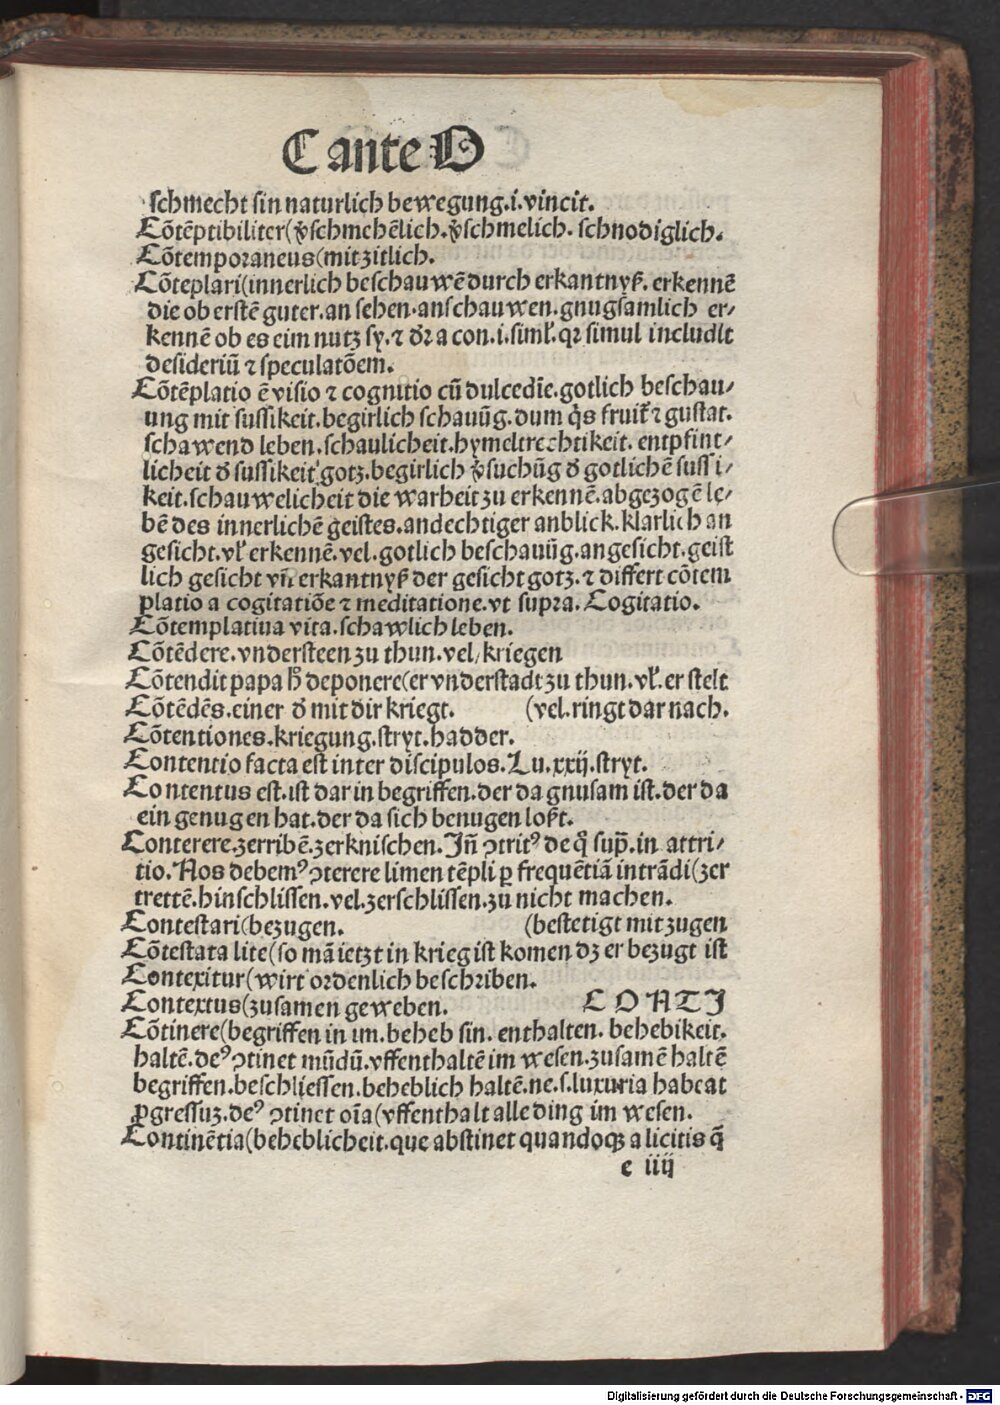 C ante O
schmecht sin naturlich bewegung.i.vincit.
Cõtẽptibiliter(ꝟschmehẽlich.ꝟschmelich. schnodiglich.
Cõtemporaneus(mitzitlich.
Cõteplari(innerlich beschauwẽ durch erkantnyß. erkennẽ
die oberstẽ guter.an sehen.anschauwen.gnugsamlich er⸗
kennẽ ob es eim nutz sy.⁊ dr̃ a con.i.siml̃.qꝛ simul includit
desideriũ ⁊ speculatõem.
Cõtẽplatio ẽ visio ⁊ cognitio cũ dulcedĩe.gotlich beschau⸗
ung mit sussikeit.begirlich schauũg.dum q̃s fruit̃ ⁊ gustat.
schawend leben.schaulicheit.hymeltrechtikeit. entpfint⸗
licheit d̃ sussikeit gotz.begirlich ꝟsuchũg d̃ gotlichẽ sussi⸗
keit.schauwelicheit die warheit zu erkennẽ.abgezogẽ le⸗
bẽ des innerlichẽ geistes.andechtiger anblick.klarlich an
gesicht.vl̃ erkennẽ.vel.gotlich beschauũg.angesicht.geist
lich gesicht vñ erkantnyß der gesicht gotz.⁊ differt cõtem
platio a cogitatiõe ⁊ meditatione.vt supra. Cogitatio.
Cõtemplatiua vita.schawlich leben.
Cõtẽdere.vndersteen zu thun.vel kriegen
Cõtendit papa h̃ deponere(er vnderstadt zu thun.vl̃.er stelt
Cõtẽdẽs.einer d̃ mit dir kriegt. (vel.ringt dar nach.
Cõtentiones.kriegung.stryt.hadder.
Contentio facta est inter discipulos.Lu.xxij.stryt.
Contentus est.ist dar in begriffen.der da gnusam ist.der da
ein genugen hat.der da sich benugen loßt.
Conterere.zerribẽ.zerknischen.Iñ ꝯtritꝰ de q̃ sup̃.in attri⸗
tio.Nos debemꝰ ꝯterere limen tẽpli ꝑ frequẽtiã intrãdi(zer
trettẽ.hinschlissen.vel.zerschlissen.zu nicht machen.
Contestari(bezugen. (bestetigt mit zugen
Cõtestata lite(so mã ietzt in krieg ist komen dz er bezugt ist
Contexitur(wirt ordenlich beschriben.
Contextus(zusamen geweben. C O N T I
Cõtinere(begriffen in im.beheb sin. enthalten. behebikeit.
haltẽ.deꝰ ꝯtinet mũdũ.vffenthaltẽ im wesen.zusamẽ haltẽ
begriffen.beschliessen.beheblich haltẽ.ne.s.luxuria habeat
ꝓgressuʒ.deꝰ ꝯtinet oĩa(vffenthalt alle ding im wesen.
Continẽtia(beheblicheit.que abstinet quandoqꝫ a licitis q̃
e iiij
Digitalisierung gefördert durch die Deutsche Forschungsgemeinschaft - DFG